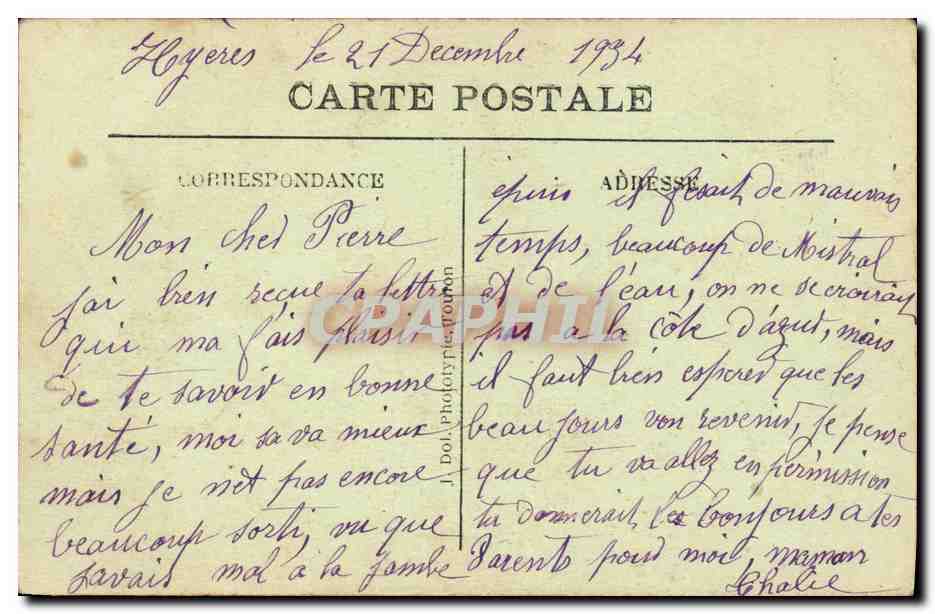 Hyères le 21 Decembre 1934
CARTE POSTALE
CORRESPONDANCE
Mon cher Pierre
j'ai bien reçue ta lettre
qui ma fais plaisir
de te savoir en bonne
santé, moi sa va mieux
mais je n'et pas encore
beaucoup sorti, vu que
javais mal a la jambe
J. Dol. Phototypie, Toulon
ADRESSE
epuis il fesait de mauvais
temps, beaucoup de Mistral
et de l'éau, on ne se croirait
pas a la côte d'azur, mais
il faut bien esperer que les
beau jours von revenir, je pense
que tu va allez en permission
tu donnerait les bonjours a tes
Parents pour moi, maman
CPAPHIL